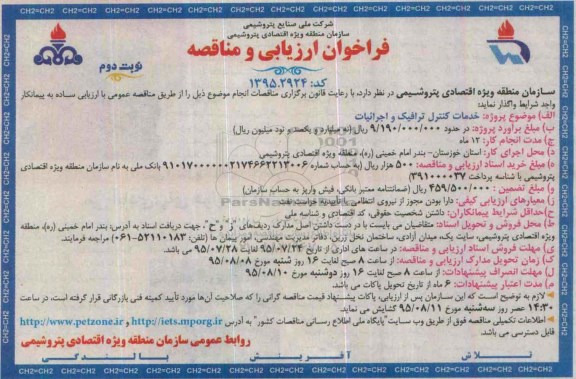 شرکت ملی صنایع پتروشیمی
سازمان منطقه ویژه اقتصادی پتروشیمی
فراخوان ارزیابی و مناقصه
نوبت دوم
کد: ۱۳۹۵.۲۹۲۴
سـازمان منطقه ویژه اقتصادی پتروشـیمی در نظر دارد، با رعایت قانون برگزاری مناقصات انجام موضوع ذیل را از طریق مناقصه عمومی با ارزیابی سـاده به پیمانکار
واجد شرایط واگذار نماید:
الف) موضوع پروژه: خدمات کنترل ترافیک و اجرائیات
ب) مبلغ برآورد پروژه: در حدود ۹/۱۹۰/۰۰۰/۰۰۰ ریال (نه میلیارد و یکصد و نود میلیون ریال)
ج) مدت انجام کار: ۱۲ ماه
د) محل اجرای کار: استان خوزستان- بندر امام خمینی (ره)، منطقه ویژه اقتصادی پتروشیمی
ه) مبلغ خرید اسناد ارزیابی و مناقصه: ۵۰۰ هزار ریال (به حساب شماره ۹۱۰۱۷۰۰۰۰۰۰۲۱۷۴۶۶۲۲۱۳۰۰۶ بانک ملی به نام سازمان منطقه ویژه اقتصادی
پتروشیمی با شناسه پرداخت ۳۹۱۰۰۰۰۳۷)
و) مبلغ تضمین: ۴۵۹/۵۰۰/۰۰۰ ریال (ضمانتنامه معتبر بانکی، فیش واریز به حساب سازمان)
ز) معیارهای ارزیابی کیفی: دارا بودن مجوز از نیروی انتظامی یا تأییدیه حراست نفت
ح) حداقل شرایط پیمانکاران: داشتن شخصیت حقوقی، کد اقتصادی و شناسه ملی
ط) محل فروش و تحویل اسناد: متقاضیان می بایست با در دست داشتن اصل مدارک ردیف‌های "ز" و "ح"، جهت دریافت اسناد به آدرس: بندر امام خمینی (ره)، منطقه
ویژه اقتصادی پتروشیمی، سایت یک، میدان آزادی، ساختمان نخل زرین، دفاتر مدیریت مهندسی، امور پیمان ها (تلفن: ۵۲۱۱۰۱۸۳-۰۶۱) مراجعه فرمایند.
ی) مهلت فروش اسناد ارزیابی و مناقصه: در ساعت های اداری از تاریخ ۹۵/۰۷/۲۴ لغایت ۹۵/۰۷/۲۸ می باشد.
ک) زمان تحویل مدارک ارزیابی و مناقصه: از ساعت ۸ صبح لغایت ۱۶ روز شنبه مورخ ۹۵/۰۸/۰۸
ل) مهلت انصراف پیشنهادات: از ساعت ۸ صبح لغایت ۱۶ روز دوشنبه مورخ ۹۵/۰۸/۱۰
م) مدت اعتبار پیشنهادات: ۶ ماه از تاریخ تحویل پاکات می باشد.
لازم به توضیح است که این سازمان پس از ارزیابی، پاکات پیشنهاد قیمت مناقصه گرانی را که صلاحیت آن‌ها مورد تأیید کمیته فنی بازرگانی قرار گرفته است، در ساعت
۱۴:۳۰ عصر روز سه‌شنبه مورخ ۹۵/۰۸/۱۱ گشایش می نماید.
اطلاعات تکمیلی مناقصه فوق از طریق وب سایت "پایگاه ملی اطلاع رسانی مناقصات کشور" به آدرس http://iets.mporg.ir و http://www.petzone.ir
قابل دسترسی می باشد.
روابط عمومی سازمان منطقه ویژه اقتصادی پتروشیمی
تلاش آفرینش بالندگی